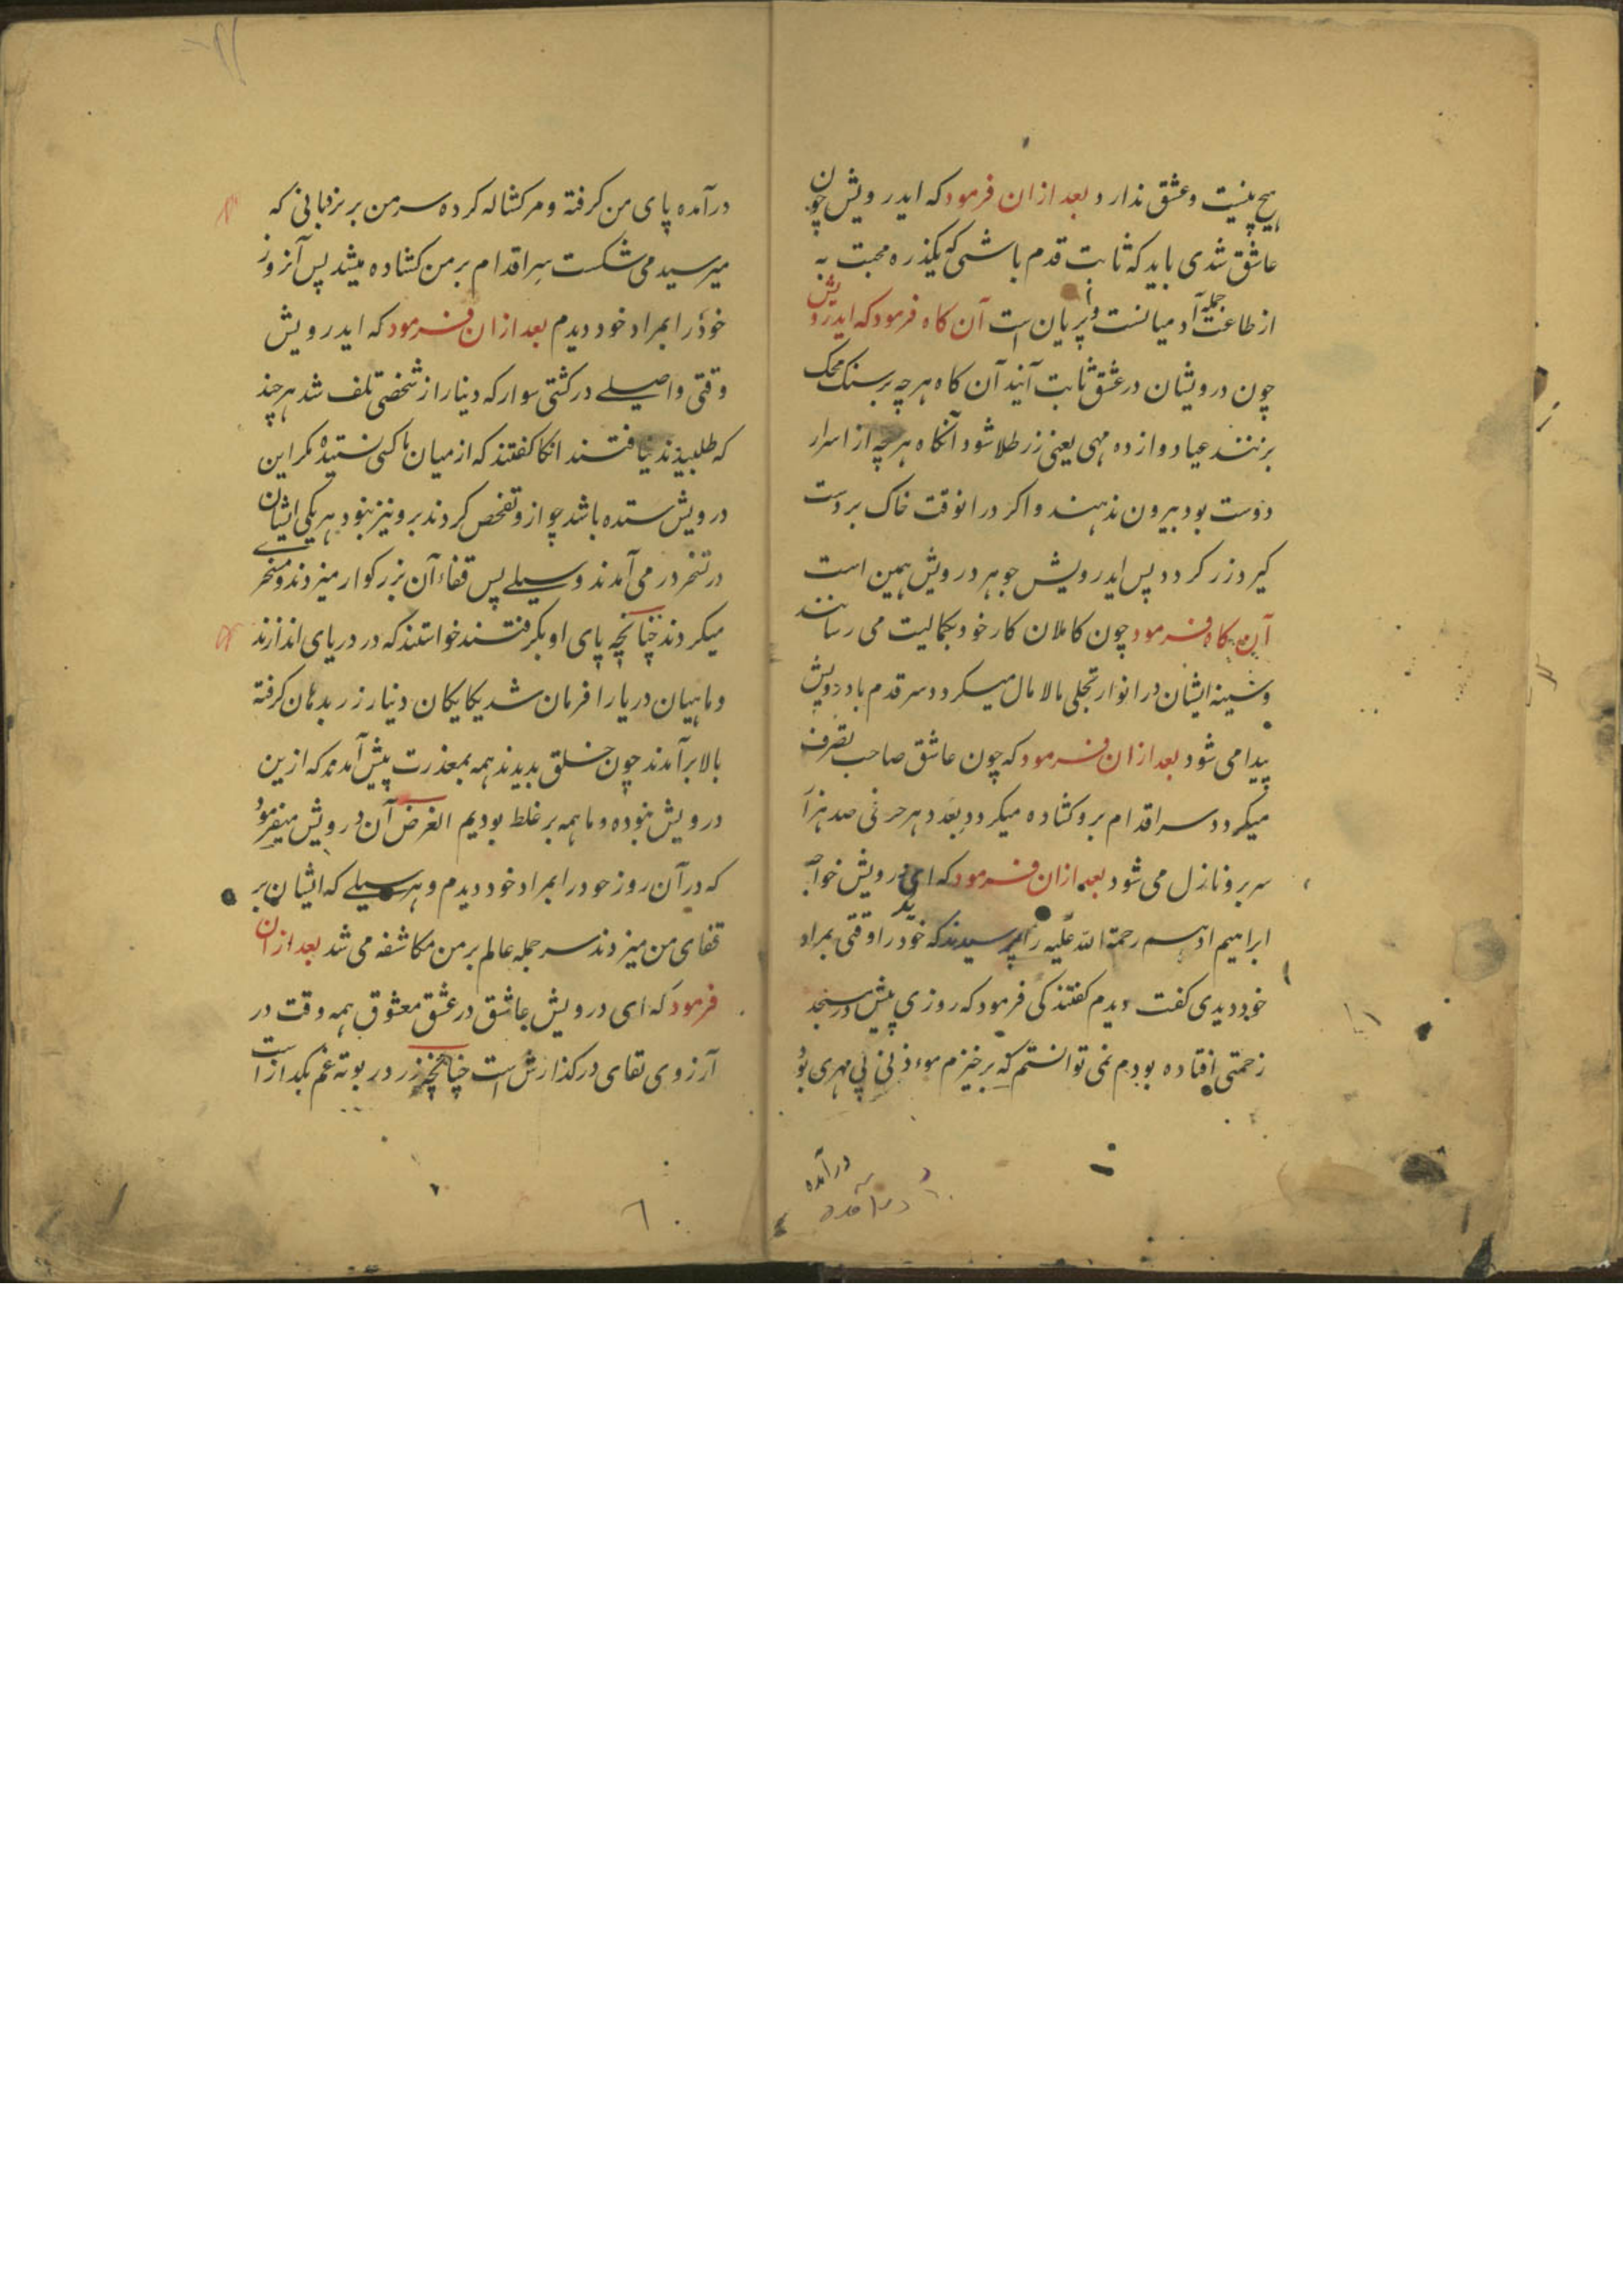 هیچ نیست و عشق ندارد بعد ازان فرمود که ایدرویش چون
عاشق شدی باید که ثابت قدم باشی که یکذره محبت به
از طاعت جمله آدمیانست و پریان است آن کاه فرمود که ایدرویش
چون درویشان در عشق ثابت آیند آن کاه هرچه بر سنک محک
بزنند عیار دوازده مهی یعنی زر طلا شود آنکاه هرچه از اسرار
دوست بود بیرون ندهند و اکر درانوقت خاک بر دست
کیرد زر کردد پس ایدرویش جوهر درویش همین است
آن کاه فرمود چون کاملان کار خود بکمالیت می رسانند
و سینه ایشان در انوار تجلی مالا مال میکردد سر قدم با درویش
پیدا می شود بعد ازان فرمود که چون عاشق صاحب تصرف
میکردد سر اقدام برو کشاده میکردد بعد هر حرفی صد هزار
سر برو نازل می شود بعد ازان فرمود که ای درویش خواجه
ابراهیم ادهم رحمة الله علیه را پرسیدند که خود را وقتی بمراد
خود دیدی کفت دیدم کفتند کی فرمود که روزی پیش در مسجد
زحمتی افتاده بودم نمی توانستم که برخیزم موءذنی بی مهری بود
درآمده
درآمده
درآمده پای من کرفته و مر کشاله کرده سر من بر نردبانی که
میرسید می شکست سر اقدام بر من کشاده میشد پس آنروز
خود را بمراد خود دیدم بعد ازان فرمود که ایدرویش
وقتی واصیلے در کشتی سوار که دینار از شخصی تلف شد هرچند
که طلبیدند نیافتند انکا کفتند که از میان ما کسی نستیده مکر این
درویش ستده باشد چو ازو تفحص کردند برو نیز نبود هر یکی ایشان
در تنخر در می آمدند و سیلے پس قفاء آن بزرکوار میزدند و مسخرے
میکردند چنانچه پای او بکرفتند خواستند که در دریای اندازند
و ماهیان دریا را فرمان شد یکایکان دینار زر بدهان کرفته
بالا برآمدند چون خلق بدیدند همه بمعذرت پیش آمدند که ازین
درویش نبوده و ما همه بر غلط بودیم الغرض آن درویش میفرمود
که در آن روز خود را بمراد خود دیدم و هر سیلے که ایشان بر
قفای من میزدند سر جمله عالم بر من مکاشفه می شد بعد ازان
فرمود که ای درویش عاشق در عشق معشوق همه وقت در
آرزوی تقای در کذارش است چنانچه زر در بوته غم بکداز است